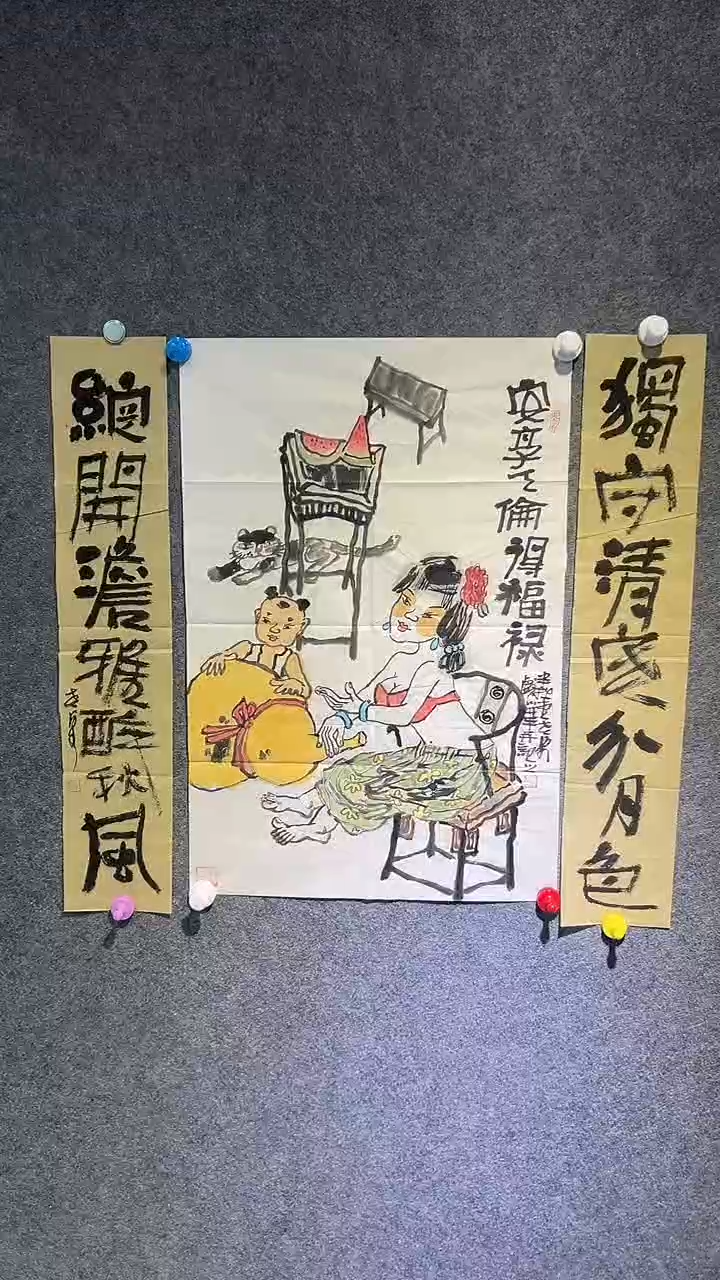 獨守清寒分月色
安享天倫得福祿
總開澹雅醉秋風